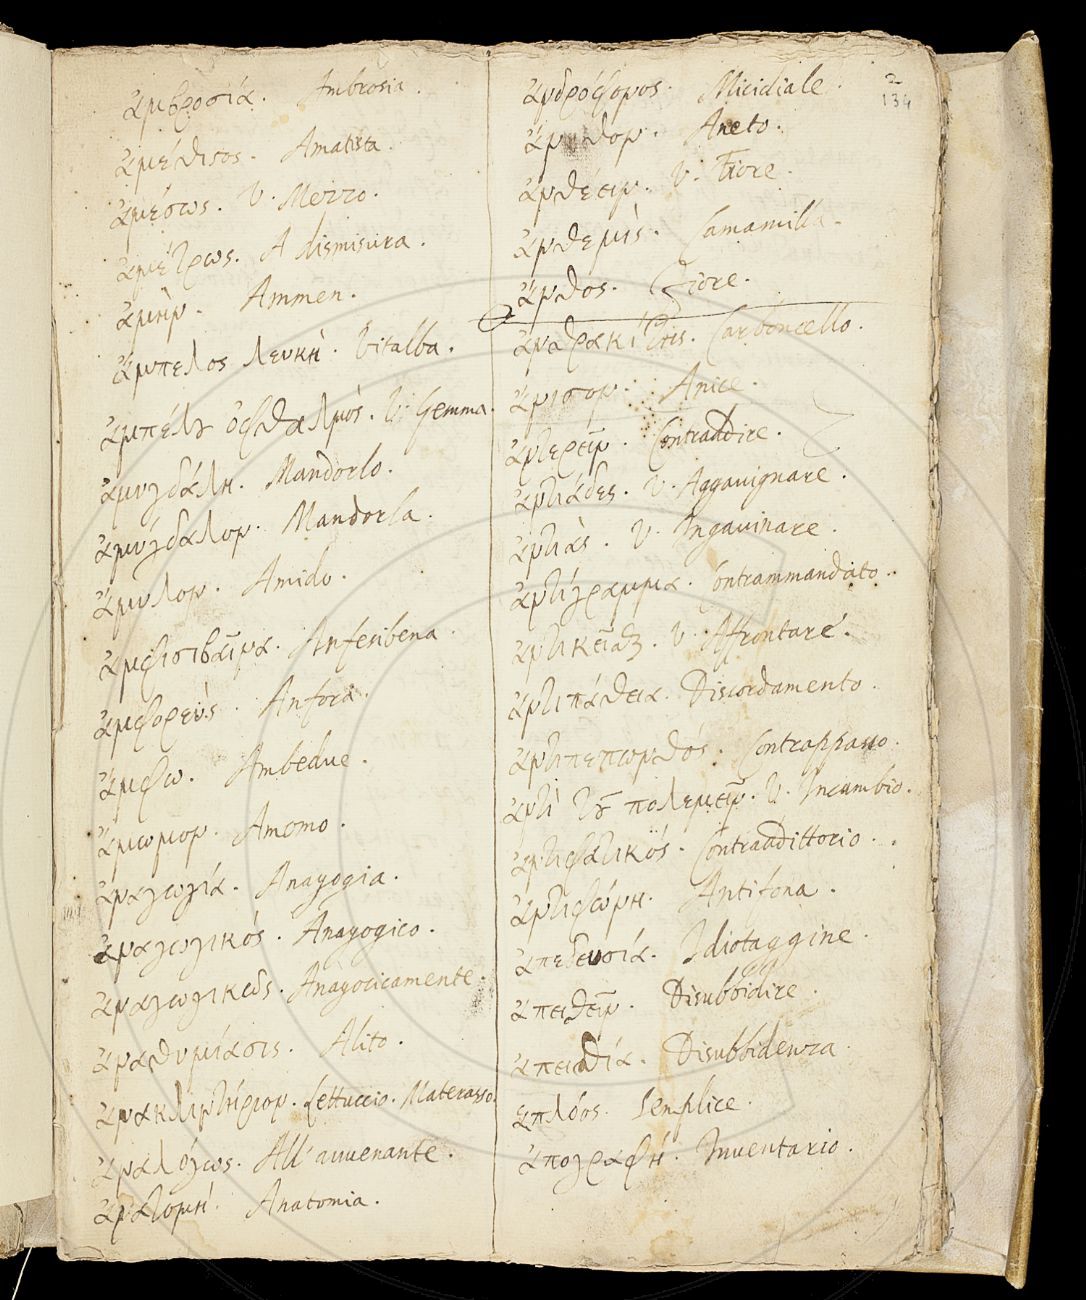 ἀμβροσιά. Ambrosia.
ἀμέθισος. Amatista.
ἀμέσως. V. Mezzo.
ἀμέτρως. A dismisura.
ἀμήν. Ammen.
ἄμπελος λευκή. Vitalba.
ἀμπέλȣ ὀφθαλμός. V. Gemma.
ἀμυγδάλη. Mandorlo.
ἀμύγδαλον. Mandorla.
ἄμυλον. Amido.
ἀμφισιβαῖνα. Anfesibena.
ἀμφορεύς. Anfora.
ἄμφω. Ambedue.
ἄμωμον. Amomo.
ἀναγωγία. Anagogia.
ἀναγωγικός. Anagogico.
ἀναγωγικῶς. Anagogicamente.
ἀναθυμίασις. Alito.
ἀνακλιντήριον. Lettuccio. Materasso.
ἀναλόγως. All'avvenante.
ἀνατομή. Anatomia.
2
134
ἀνδρόφονος. Micidiale.
ἄνηθον. Aneto.
ἀνθέειν. V. Fiore.
ἀνθεμίς. Camamilla.
ἄνθος. Fiore.
ἀνθρακίτις. Carboncello.
ἄνισον. Anice.
ἀντερεῖν. Contraddire.
ἀντιάδες. V. Aggavignare.
ἀντιάς. V. Ingavinare.
ἀντίγραμμα. Contrammandato.
ἀντικεῖσθαι. V. Affrontare.
ἀντιπάθεια. Discordamento.
ἀντιπεπονθός. Contrappasso.
ἀντὶ τȣ͂ πολεμεῖν. V. Incambio.
ἀντιφατικός. Contraddittorio.
ἀντιφώνη. Antifona.
ἀπεδευσία. Idiotaggine.
ἀπειθεῖν. Disubbidire.
ἀπειθία. Disubbidenza.
ἁπλόος. Semplice.
ἀπογραφή. Inventario.